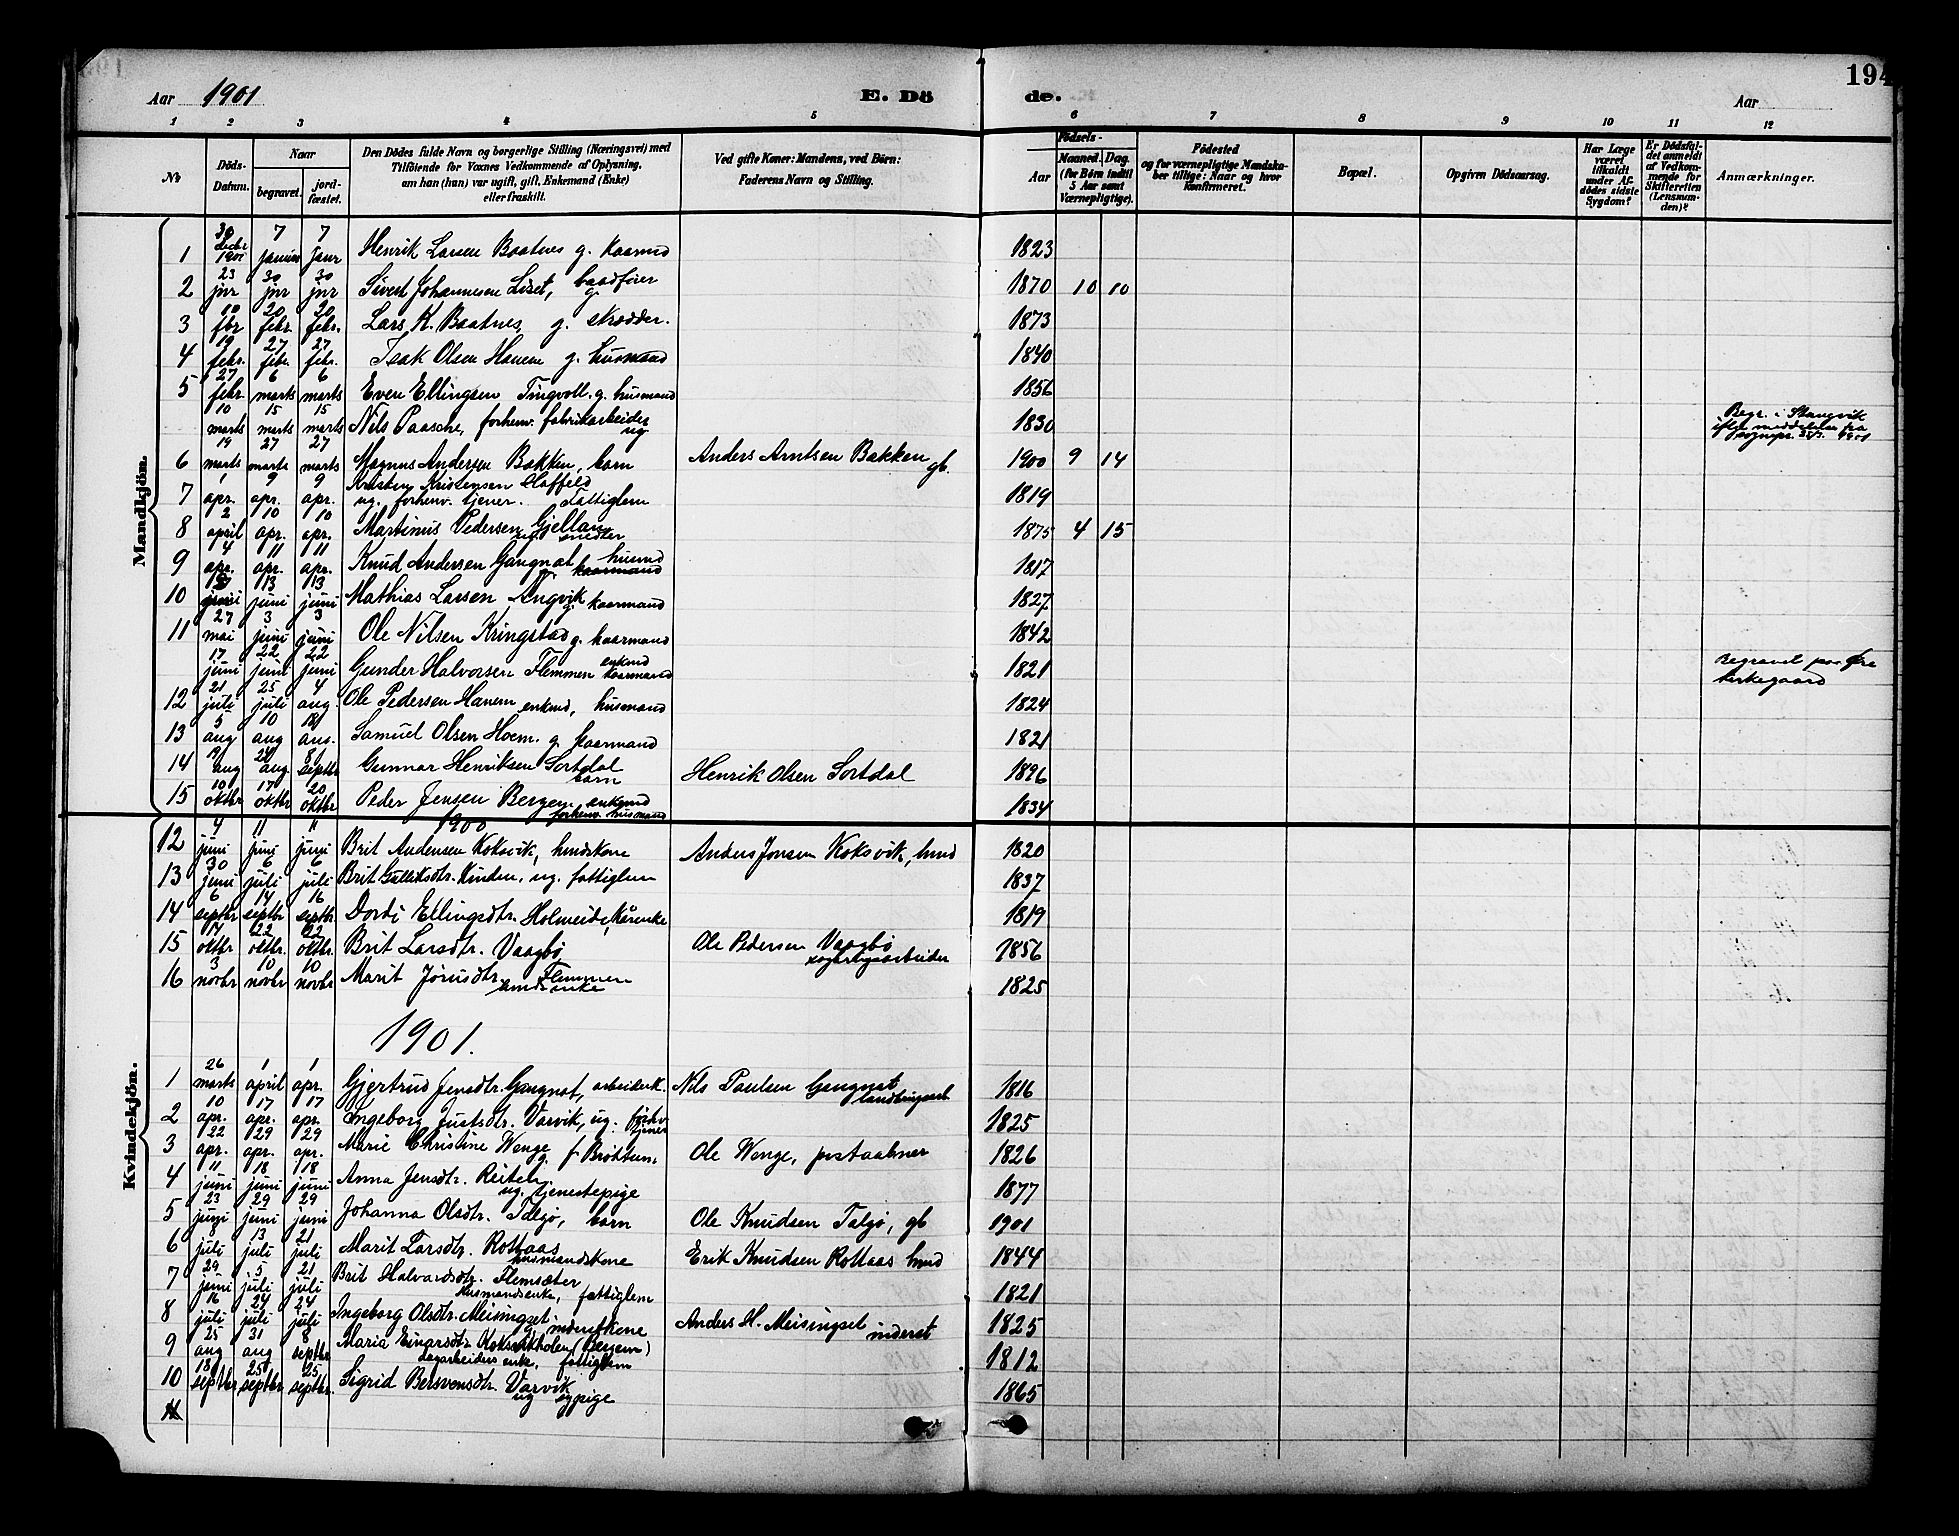 194
Aar 1901 E. Dö de. Aar
1 2 3 4 5 6 7 8 9 10 11 12
No Döds-Datum. Naar begravet. jordfæstet. Den Dödes fulde Navn og borgerlige Stilling (Næringsvei) med Tilföiende for Voxnes Vedkommende af Oplysning, om han (hun) var ugift, gift, Enkemand (Enke) eller fraskilt. Ved gifte Koner: Mandens, ved Börn: Faderens Navn og Stilling. Födsels- Aar Maaned. Dag. (for Börn indtil 5 Aar samt Værnepligtige). Födested og for værnepligtige Mandskaber tillige: Naar og hvor konfirmeret. Bopæl. Opgiven Dödsaarsag. Har Læge været tilkaldt under Afdödes sidste Sygdom? Er Dödsfaldet anmeldt af Vedkommende for Skifteretten (Lensmanden)? Anmærkninger.
Mandkjön.
1 30 Decbr 1901 7 januar 7 janr Henrik Larsen Baatnes g. kaarmd 1823
2 23 jnr 30 jnr 30 jnr Sivert Johannesen Liset, baadfører g. 1870 10 10
3 10 fbr 20 febr. 20 febr. Lars K. Baatnes, g. skrædder. 1873
4 19 febr. 27 febr. 27 febr. Isak Olsen Hanem g. husmand 1840
5 27 febr. 6 marts 6 marts Even Ellingsen Tingvoll. g. husmand 1856
10 marts 15 marts 15 marts Nils Paasche, forhenv. fabrikarbeider ug 1830 Begr. i Stangvik ifølge meddelelse fra sognepr. 1901
6 19 marts 27 marts 27 marts Magnus Andersen Bakken, barn Anders Arntsen Bakken gb. 1900 9 14
7 1 apr. 9 apr. 9 apr. Kristen Kristensen ug. forhenv. tjener. Fattiglem 1819
8 2 april 10 apr. 10 apr. Martinus Pedersen Gjellan ug. 1875 4 15
9 4 apr. 11 apr. 11 apr. Knud Andersen Gangnat husmd g. kaarmand 1817
10 juni 13 juni 13 juni Mathias Larsen Angvik g. kaarmand 1827
11 27 mai 3 juni 3 juni Ole Nilsen Kringstad g. kaarmand 1842
17 juni 22 juni 22 juni Gunder Halvorsen Flemmen enkmd kaarmand 1821 Begravet paa Øre kirkegaard
12 21 juli 25 juli 4 aug. Ole Pedersen Hanem enkmd, husmand 1824
13 5 aug 10 aug 18 aug. Samuel Olsen Hoem. g. kaarmand 1821
14 19 aug 24 aug. 8 septbr Gunnar Henriksen Sortdal barn Henrik Olsen Sortdal 1896
15 10 oktbr 17 oktbr 20 oktbr Peder Jensen Bergem enkmd forhenv. husmand 1834
Kvindekjön.
1900
12 4 juni 11 juni 11 juni Brit Andersen Koksvik, hmdskone Anders Jonsen Koksvik, hmd 1820
13 30 juni 6 juli 6 juli Brit Gulliksdtr. Kinden, ug. fattiglem 1837
14 6 septbr 14 septbr 16 septbr Dordi Ellingsdtr. Holmeide, kårenke 1819
15 14 oktbr 22 oktbr. 22 oktbr. Brit Larsdtr. Vaagbø Ole Pedersen Vaagbø sagbrugsarbeider 1856
16 3 novbr 10 novbr 10 novbr Marit Jonsdtr. Flemmen hmdsenke 1825
1901.
1 26 marts 1 april 1 apr. Gjertrud Jensdtr. Gangnat, arbeiderk. Nils Paulsen Gangnat 1816
2 10 apr. 17 apr. 17 apr. Ingeborg Justsdtr. Varvik, ug. forhv. tjener 1825
3 22 apr. 29 apr. 29 apr. Marie Christine Wenge g. f. Brøttum. Ole Wenge, postaabner 1826
4 11 juni 18 juni 18 juni Anna Jensdtr. Reiten ug. tjenestepige 1877
5 23 juni 29 juni 29 juni Johanna Olsdtr. Talgø, barn Ole Knudsen Talgø, gb 1901
6 8 juli 13 juli 21 juli Marit Larsdtr. Rottaas husmandskone Erik Knudsen Rottaas hmd 1844
7 29 juni 5 juli 21 juli Brit Halvardsdtr. Flemsæter Husmandsenke, fattiglem 1821
8 16 juli 24 juli 24 juli Ingeborg Olsdtr. Meisingset g inderstkone Anders H. Meisingset inderst 1825
9 25 aug 31 aug 8 septbr Maria Einarsdtr. (Bergem) dagarbeiders enke, fattiglem 1812
10 18 septbr 25 septbr 25 septbr. Sigrid Bersvensdtr. Varvik ug sypige 1865
11